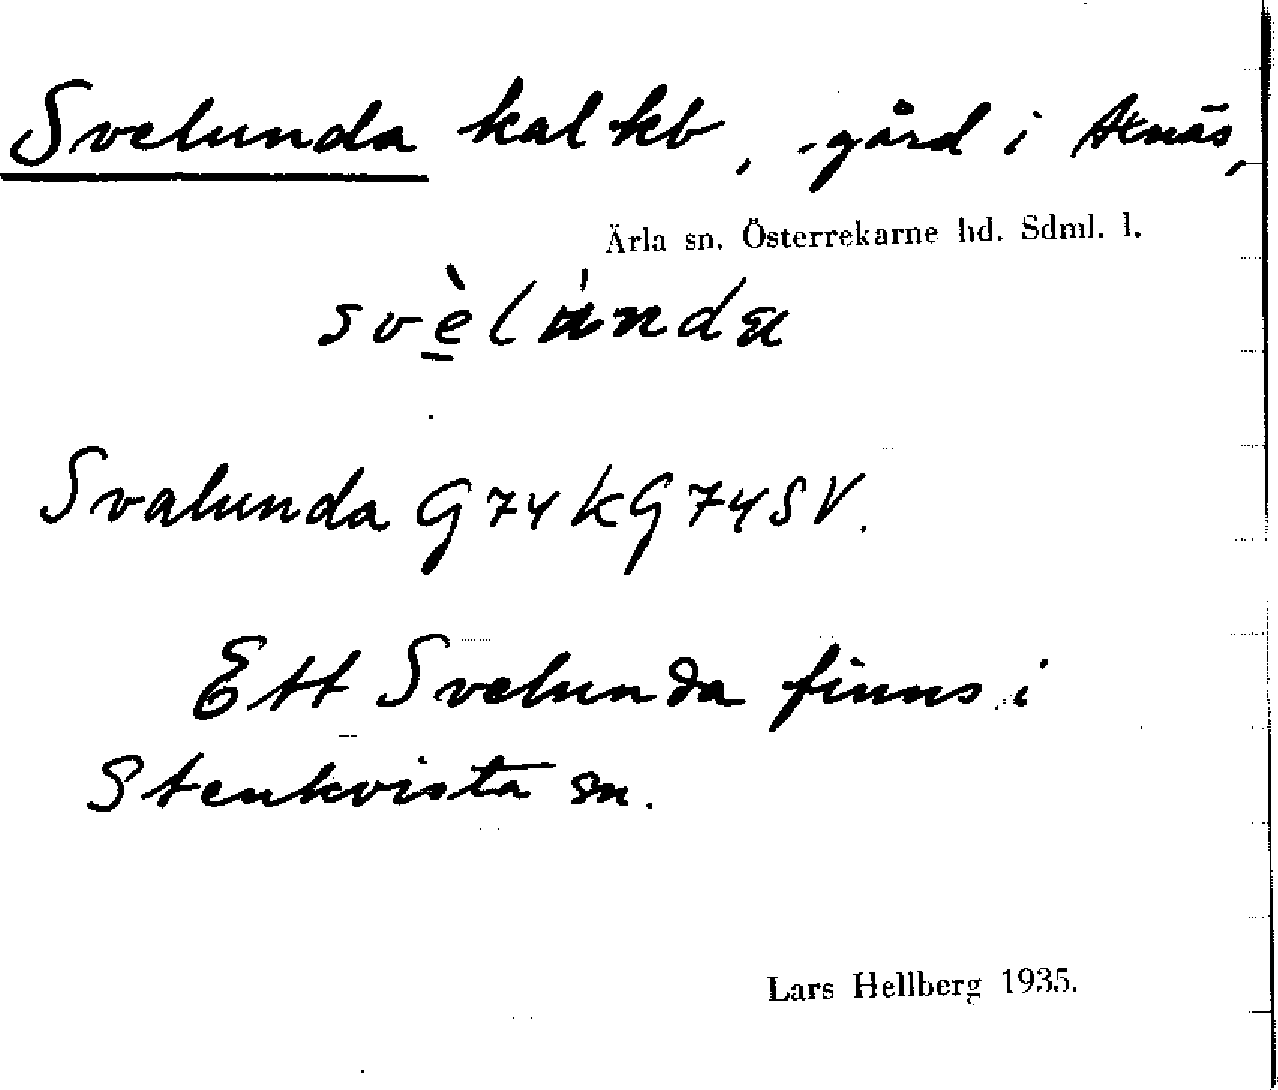 Svelunda kal kb, gård i Stenäs,
Ärla sn. Österrekarne hd. Sdml. l.
svèlúnda
Svalunda G74KG74SV.
Ett Svelunda finns i
Stenkvista sn.
Lars Hellberg 1935.